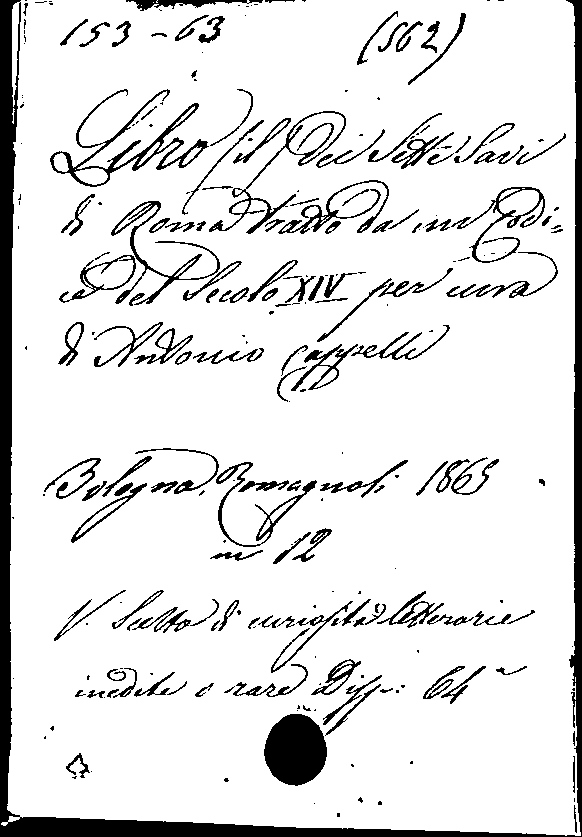 153-63 (562)
Libro (il) dei Sette Savi
di Roma tratto da un Codi=
ce del Secolo XIV per cura
di Antonio Cappelli
Bologna, Romagnoli 1865
in 12
V. Scelta di curiosità letterarie
inedite o rare Disp: 64ª